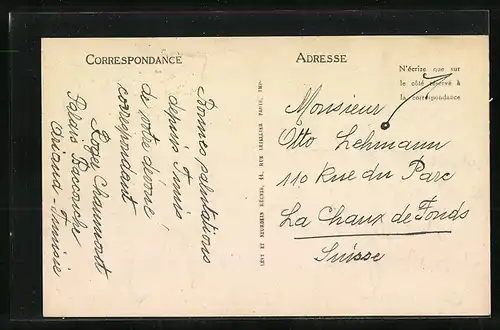 CORRESPONDANCE
Bonnes salutations
depuis Tunis
de votre dévoué
correspondant
Roger Chaumont
Palais Baccouche
Ariana - Tunisie
LÉVY ET NEURDEIN RÉUNIS, 44, RUE LETELLIER PARIS, IMP.
ADRESSE
N'écrire que sur
le côté réservé à
la correspondance
Monsieur
Otto Lehmann
110 Rue du Parc
La Chaux de Fonds
Suisse